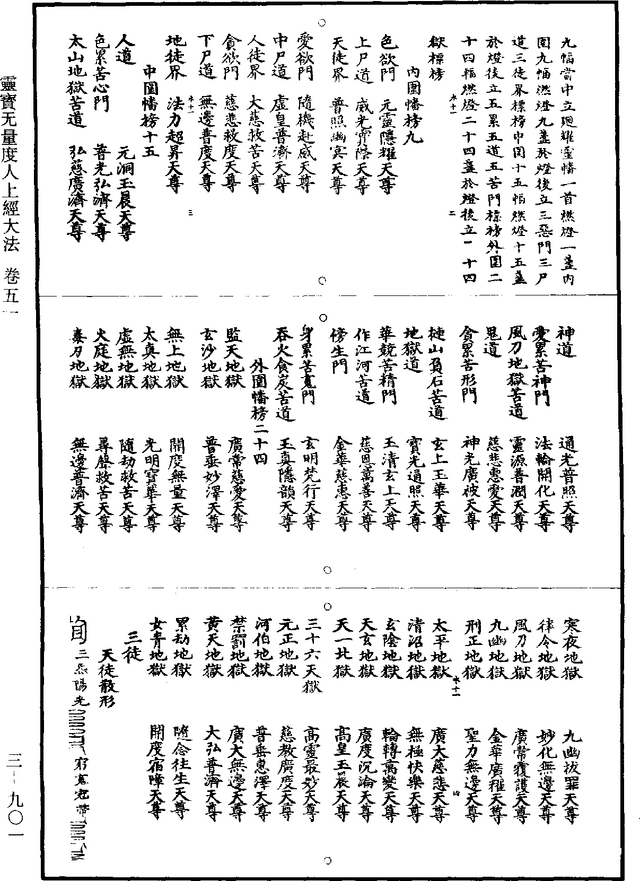 九幅當中立迴耀靈幡一首燃燈一盞內
圍九幅燃燈九盞於燈後立三惡門三尸
道三徒界標榜中圍十五幅燃燈十五盞
於燈後立五累五道五苦門標榜外圍二
十四幅燃燈二十四盞於燈後立二十四
獄標榜
內圍幡榜九
色欲門 元靈隱耀天尊
上尸道 威光霄陰天尊
天徒界 普照幽冥天尊
愛欲門 隨機赴感天尊
中尸道 虛皇普濟天尊
人徒界 大慈救苦天尊
貪欲門 慈悲救度天尊
下尸道 無邊普度天尊
地徒界 法力超昇天尊
中圍幡榜十五
人道 元洞玉晨天尊
色累苦心門 普光弘濟天尊
太山地獄苦道 弘慈廣濟天尊
神道 通光普照天尊
愛累苦神門 法輪開化天尊
風刀地獄苦道 靈源普潤天尊
鬼道 慈悲惠愛天尊
貪累苦形門 神光廣被天尊
揵山負石苦道 玄上玉華天尊
地獄道 寶光遍照天尊
華競苦精門 玉清玄上天尊
作江河苦道 慈恩萬善天尊
傍生門 金華慈惠天尊
身累苦寃門 玄明梵行天尊
吞火食炭苦道 玉真隱韻天尊
外圍幡榜二十四
監天地獄 廣常慈愛天尊
玄沙地獄 普垂妙澤天尊
無上地獄 開度無量天尊
太真地獄 光明寶華天尊
虛無地獄 隨劫救苦天尊
火庭地獄 尋聲救苦天尊
泰刀地獄 無邊普濟天尊
寒夜地獄 九幽拔罪天尊
律令地獄 妙化無邊天尊
風刀地獄 廣常覆護天尊
九幽地獄 金華廣耀天尊
刑正地獄 聖力無邊天尊
太平地獄 廣大慈悲天尊
清沼地獄 無極快樂天尊
玄陰地獄 輪轉萬變天尊
天玄地獄 廣度沉淪天尊
天一北獄 高皇玉晨天尊
三十六天獄 高靈最妙天尊
元正地獄 慈救廣度天尊
河伯地獄 普垂惠澤天尊
禁罰地獄 廣大無邊天尊
黃天地獄 大弘普濟天尊
累劫地獄 隨念往生天尊
女青地獄 開度宿障天尊
三徒
天徒散形
靈寶无量度人上經大法 卷五一
三一九〇一